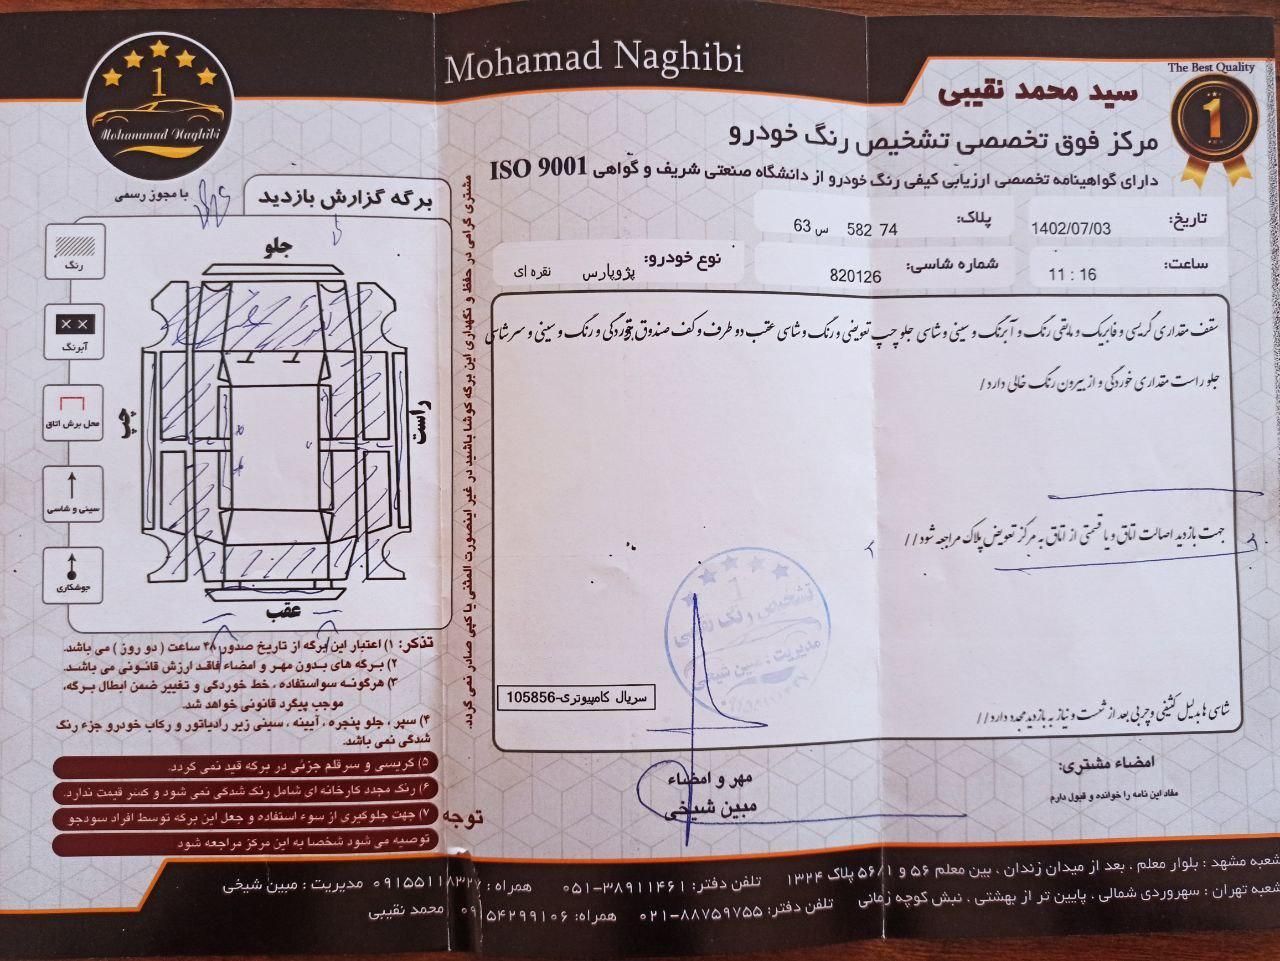 Mohamad Naghibi
The Best Quality
1
سید محمد نقیبی
مرکز فوق تخصصی تشخیص رنگ خودرو
دارای گواهینامه تخصصی ارزیابی کیفی رنگ خودرو از دانشگاه صنعتی شریف و گواهی ISO 9001
تاریخ: 1402/07/03
پلاک: 74 582 س 63
ساعت: 11 : 16
شماره شاسی: 820126
نوع خودرو: پژوپارس نقره ای
سقف مقداری گریسی و فابریک و مابقی رنگ و آبرنگ و سینی و شاسی جلو چپ تعویضی و رنگ و شاسی عقب دو طرف و کف صندوق خوردگی و رنگ و سینی و سر شاسی
جلو راست مقداری خوردگی و از بیرون رنگ خالی دارد /
جهت بازدید اصالت اتاق و یا قسمتی از اتاق به مرکز تعویض پلاک مراجعه شود //
شاسی ها بدلیل کثیفی و چربی بعد از شست و نیاز به بازدید مجدد دارد //
سریال کامپیوتری-105856
1
تشخیص رنگ نقیبی
مدیریت : مبین شیخی
مهر و امضاء
مبین شیخی
امضاء مشتری:
مفاد این نامه را خوانده و قبول دارم
1
Mohammad Naghibi
با مجوز رسمی
برگه گزارش بازدید
جلو
رنگ
آبرنگ
محل برش اتاق
سینی و شاسی
جوشکاری
چپ
راست
عقب
مشتری گرامی در حفظ و نگهداری این برگه کوشا باشید در غیر اینصورت المثنی یا کپی صادر نمی گردد.
تذکر: ۱) اعتبار این برگه از تاریخ صدور ۴۸ ساعت ( دو روز ) می باشد.
۲) برگه های بدون مهر و امضاء فاقد ارزش قانونی می باشد.
۳) هرگونه سواستفاده ، خط خوردگی و تغییر ضمن ابطال برگه،
موجب پیگرد قانونی خواهد شد.
۴) سپر ، جلو پنجره ، آیینه ، سینی زیر رادیاتور و رکاب خودرو جزء رنگ
شدگی نمی باشد.
۵) گریسی و سرقلم جزئی در برگه قید نمی گردد.
۶) رنگ مجدد کارخانه ای شامل رنگ شدگی نمی شود و کسر قیمت ندارد.
توجه ۷) جهت جلوگیری از سوء استفاده و جعل این برگه توسط افراد سودجو
توصیه می شود شخصا به این مرکز مراجعه شود
شعبه مشهد : بلوار معلم ، بعد از میدان زندان ، بین معلم ۵۶ و ۵۶/۱ پلاک ۱۳۲۴ تلفن دفتر: ۰۵۱-۳۸۹۱۱۴۶۱ همراه : ۰۹۱۵۵۱۱۸۳۲۷ مدیریت : مبین شیخی
شعبه تهران : سهروردی شمالی ، پایین تر از بهشتی ، نبش کوچه زمانی تلفن دفتر: ۰۲۱-۸۸۷۵۹۷۵۵ همراه: ۰۹۱۵۴۲۹۹۱۰۶ محمد نقیبی